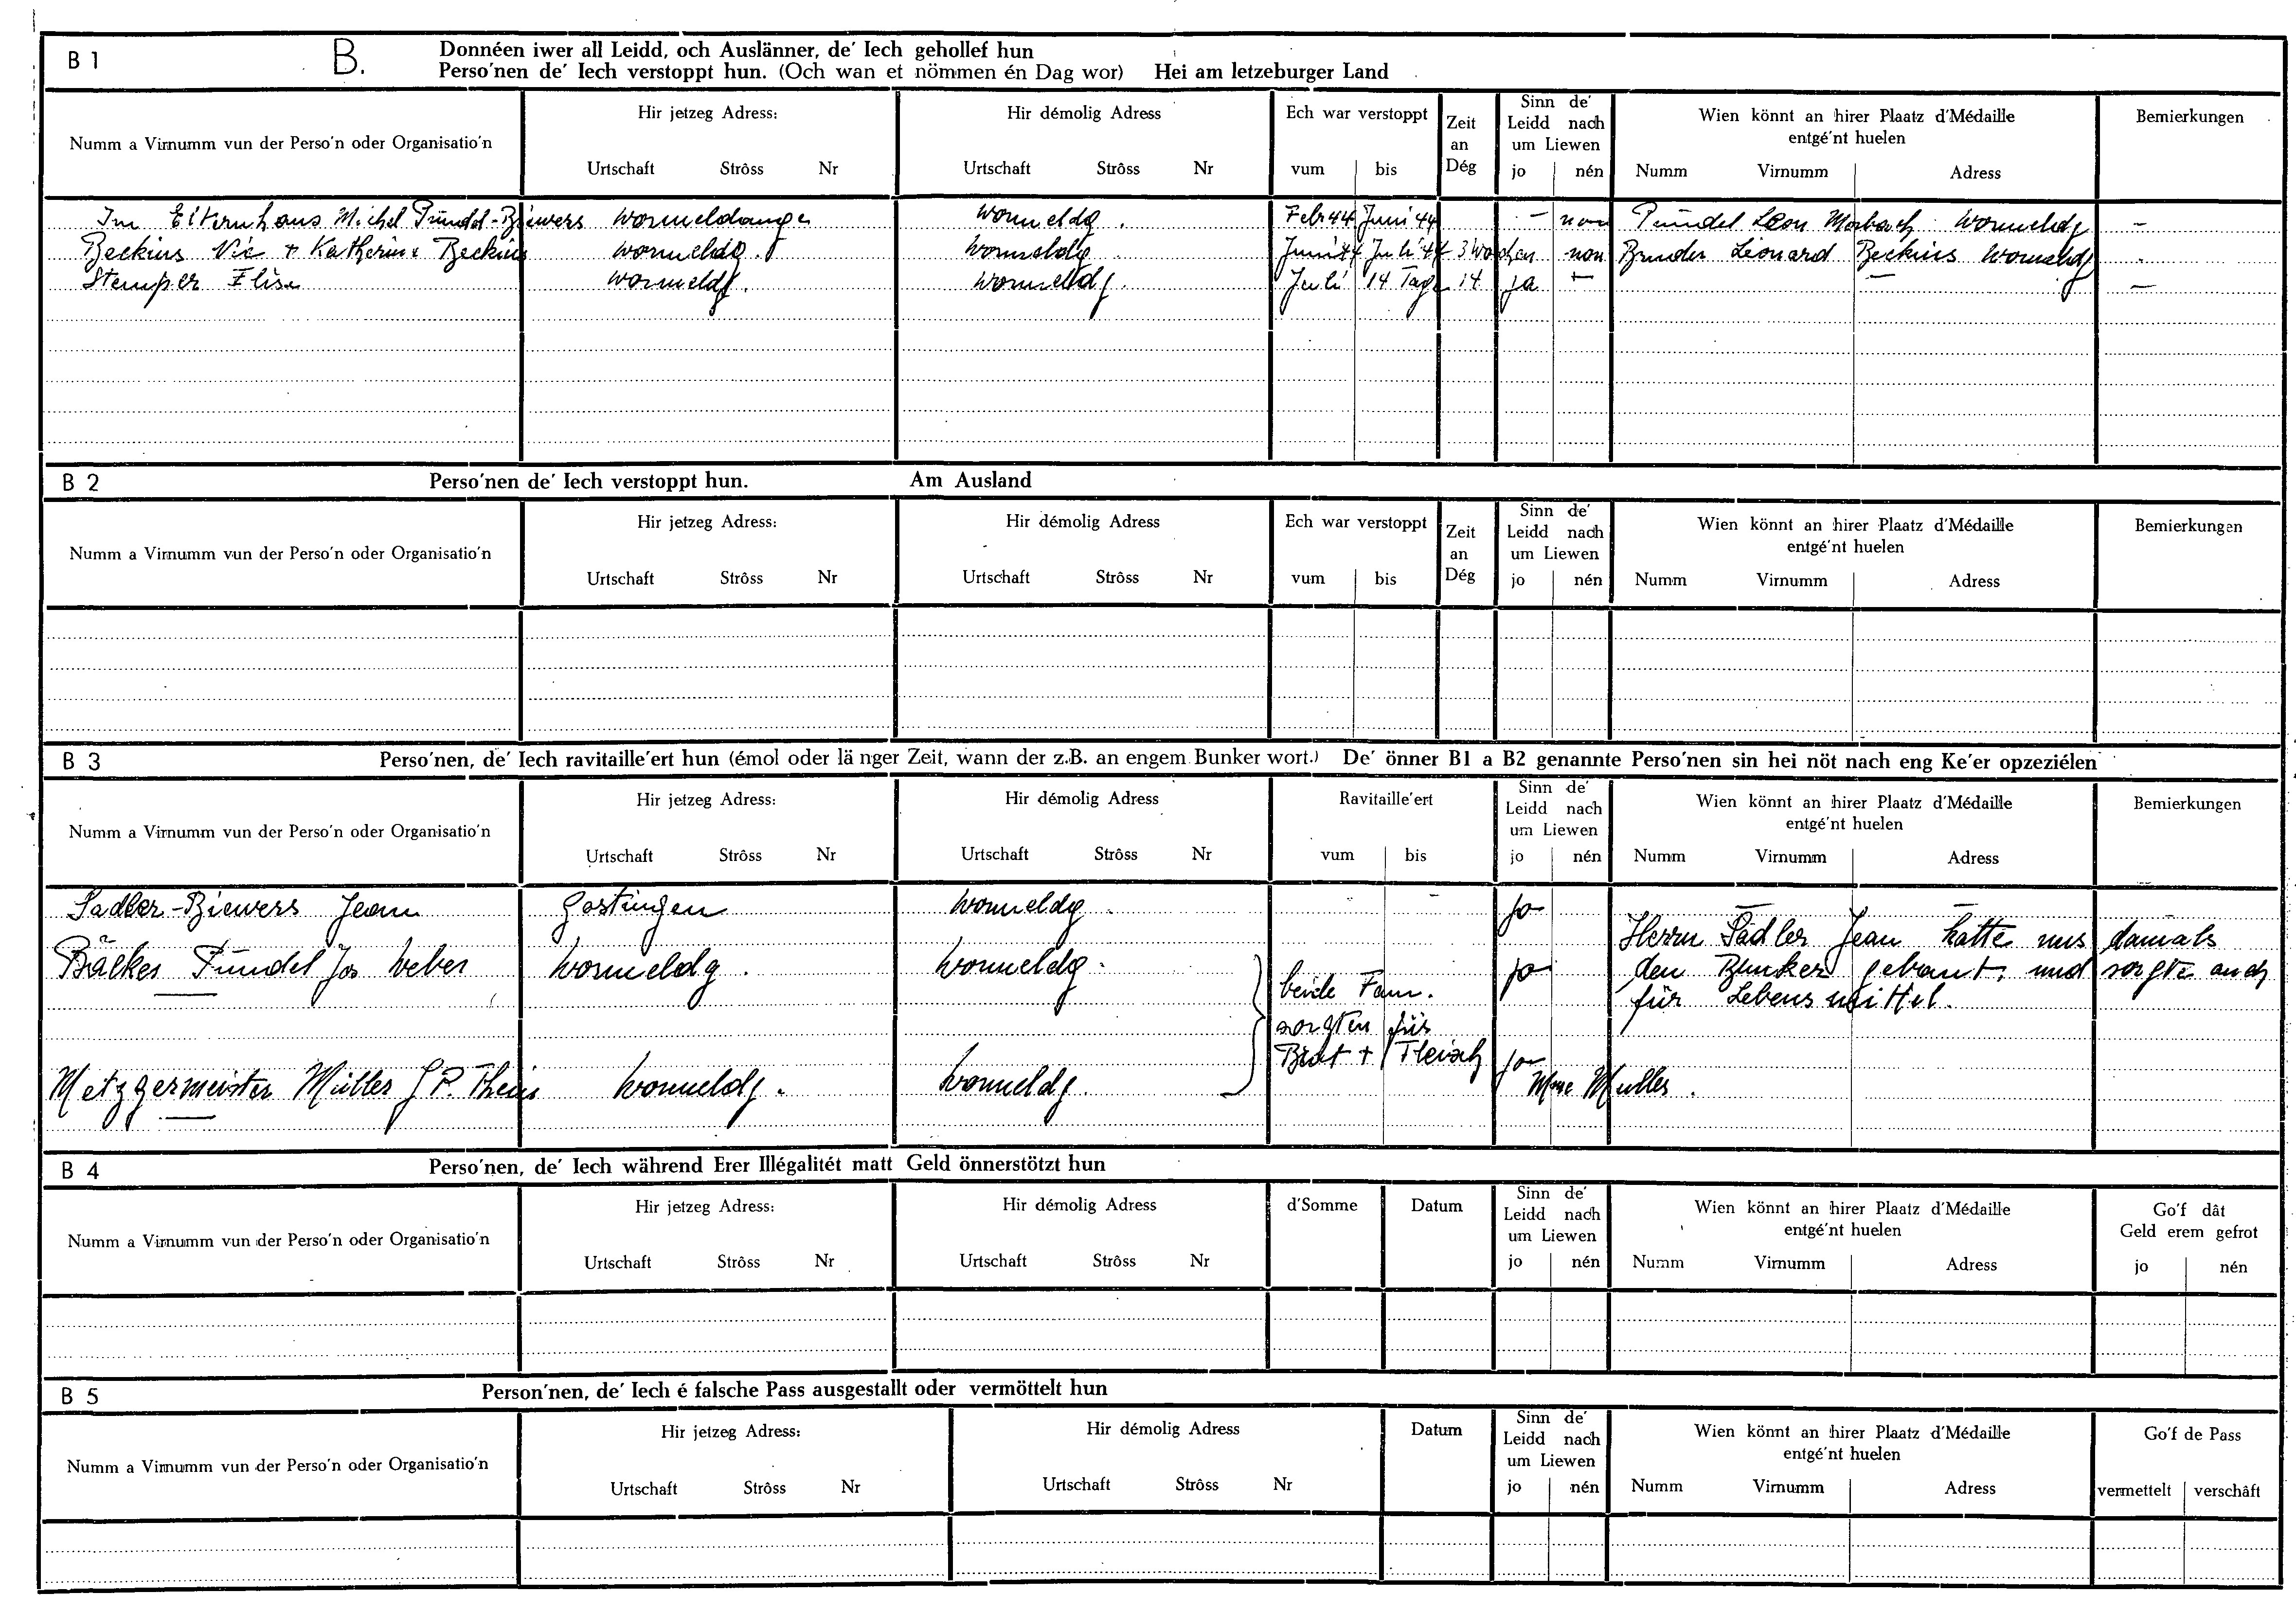 B 1 B. Donnéen iwer all Leidd, och Auslänner, de' Iech gehollef hun
Perso'nen de' Iech verstoppt hun. (Och wan et nömmen én Dag wor) Hei am letzeburger Land
Numm a Virnumm vun der Perso'n oder Organisatio'n
Hir jetzeg Adress:
Urtschaft Strôss Nr
Hir démolig Adress
Urtschaft Strôss Nr
Ech war verstoppt
vum bis
Zeit
an
Dég
Sinn de'
Leidd nach
um Liewen
jo nén
Wien könnt an hirer Plaatz d'Médaille
entgé'nt huelen
Numm Virnumm Adress
Bemierkungen
Im Elternhaus Michel Pündel-Biewers Wormeldange Wormeldg. Febr 44 Juni 44 - non Pündel Leon Wormeldg -
Beckius Vic + Katherine Beckius Wormeldg. Wormeldg. Juni 44 Juli 44 3 Wochen non Bruder Léonard Beckius Wormeldg
Stemper Elise Wormeldg. Wormeldg. Juli 14 Tage 14 ja - - -
B 2 Perso'nen de' Iech verstoppt hun. Am Ausland
Numm a Virnumm vun der Perso'n oder Organisatio'n
Hir jetzeg Adress:
Urtschaft Strôss Nr
Hir démolig Adress
Urtschaft Strôss Nr
Ech war verstoppt
vum bis
Zeit
an
Dég
Sinn de'
Leidd nach
um Liewen
jo nén
Wien könnt an hirer Plaatz d'Médaille
entgé'nt huelen
Numm Virnumm Adress
Bemierkungen
B 3 Perso'nen, de' Iech ravitaille'ert hun (émol oder länger Zeit, wann der z.B. an engem Bunker wort.) De' önner B1 a B2 genannte Perso'nen sin hei nöt nach eng Ke'er opzeziélen
Numm a Virnumm vun der Perso'n oder Organisatio'n
Hir jetzeg Adress:
Urtschaft Strôss Nr
Hir démolig Adress
Urtschaft Strôss Nr
Ravitaille'ert
vum bis
Sinn de'
Leidd nach
um Liewen
jo nén
Wien könnt an hirer Plaatz d'Médaille
entgé'nt huelen
Numm Virnumm Adress
Bemierkungen
Sadler-Biewers Jean Gostingen Wormeldg. - Jo
Bälkes Pündel Jos Weber Wormeldg. Wormeldg. Jo
Herrn Sadler Jean hatte uns damals
den Bunker gebaut, und sorgte auch
für Lebensmittel.
beide Fam.
sorgten für
Brot + Fleisch
Metzgermeister Müller J P. Theis Wormeldg. Wormeldg. Jo
Mme Muller.
B 4 Perso'nen, de' Iech während Erer Illégalitét matt Geld önnerstötzt hun
Numm a Virnumm vun der Perso'n oder Organisatio'n
Hir jetzeg Adress:
Urtschaft Strôss Nr
Hir démolig Adress
Urtschaft Strôss Nr
d'Somme
Datum
Sinn de'
Leidd nach
um Liewen
jo nén
Wien könnt an hirer Plaatz d'Médaille
entgé'nt huelen
Numm Virnumm Adress
Go'f dât
Geld erem gefrot
jo nén
B 5 Person'nen, de' Iech é falsche Pass ausgestallt oder vermöttelt hun
Numm a Virnumm vun der Perso'n oder Organisatio'n
Hir jetzeg Adress:
Urtschaft Strôss Nr
Hir démolig Adress
Urtschaft Strôss Nr
Datum
Sinn de'
Leidd nach
um Liewen
jo nén
Wien könnt an hirer Plaatz d'Médaille
entgé'nt huelen
Numm Virnumm Adress
Go'f de Pass
vermettelt verschâft